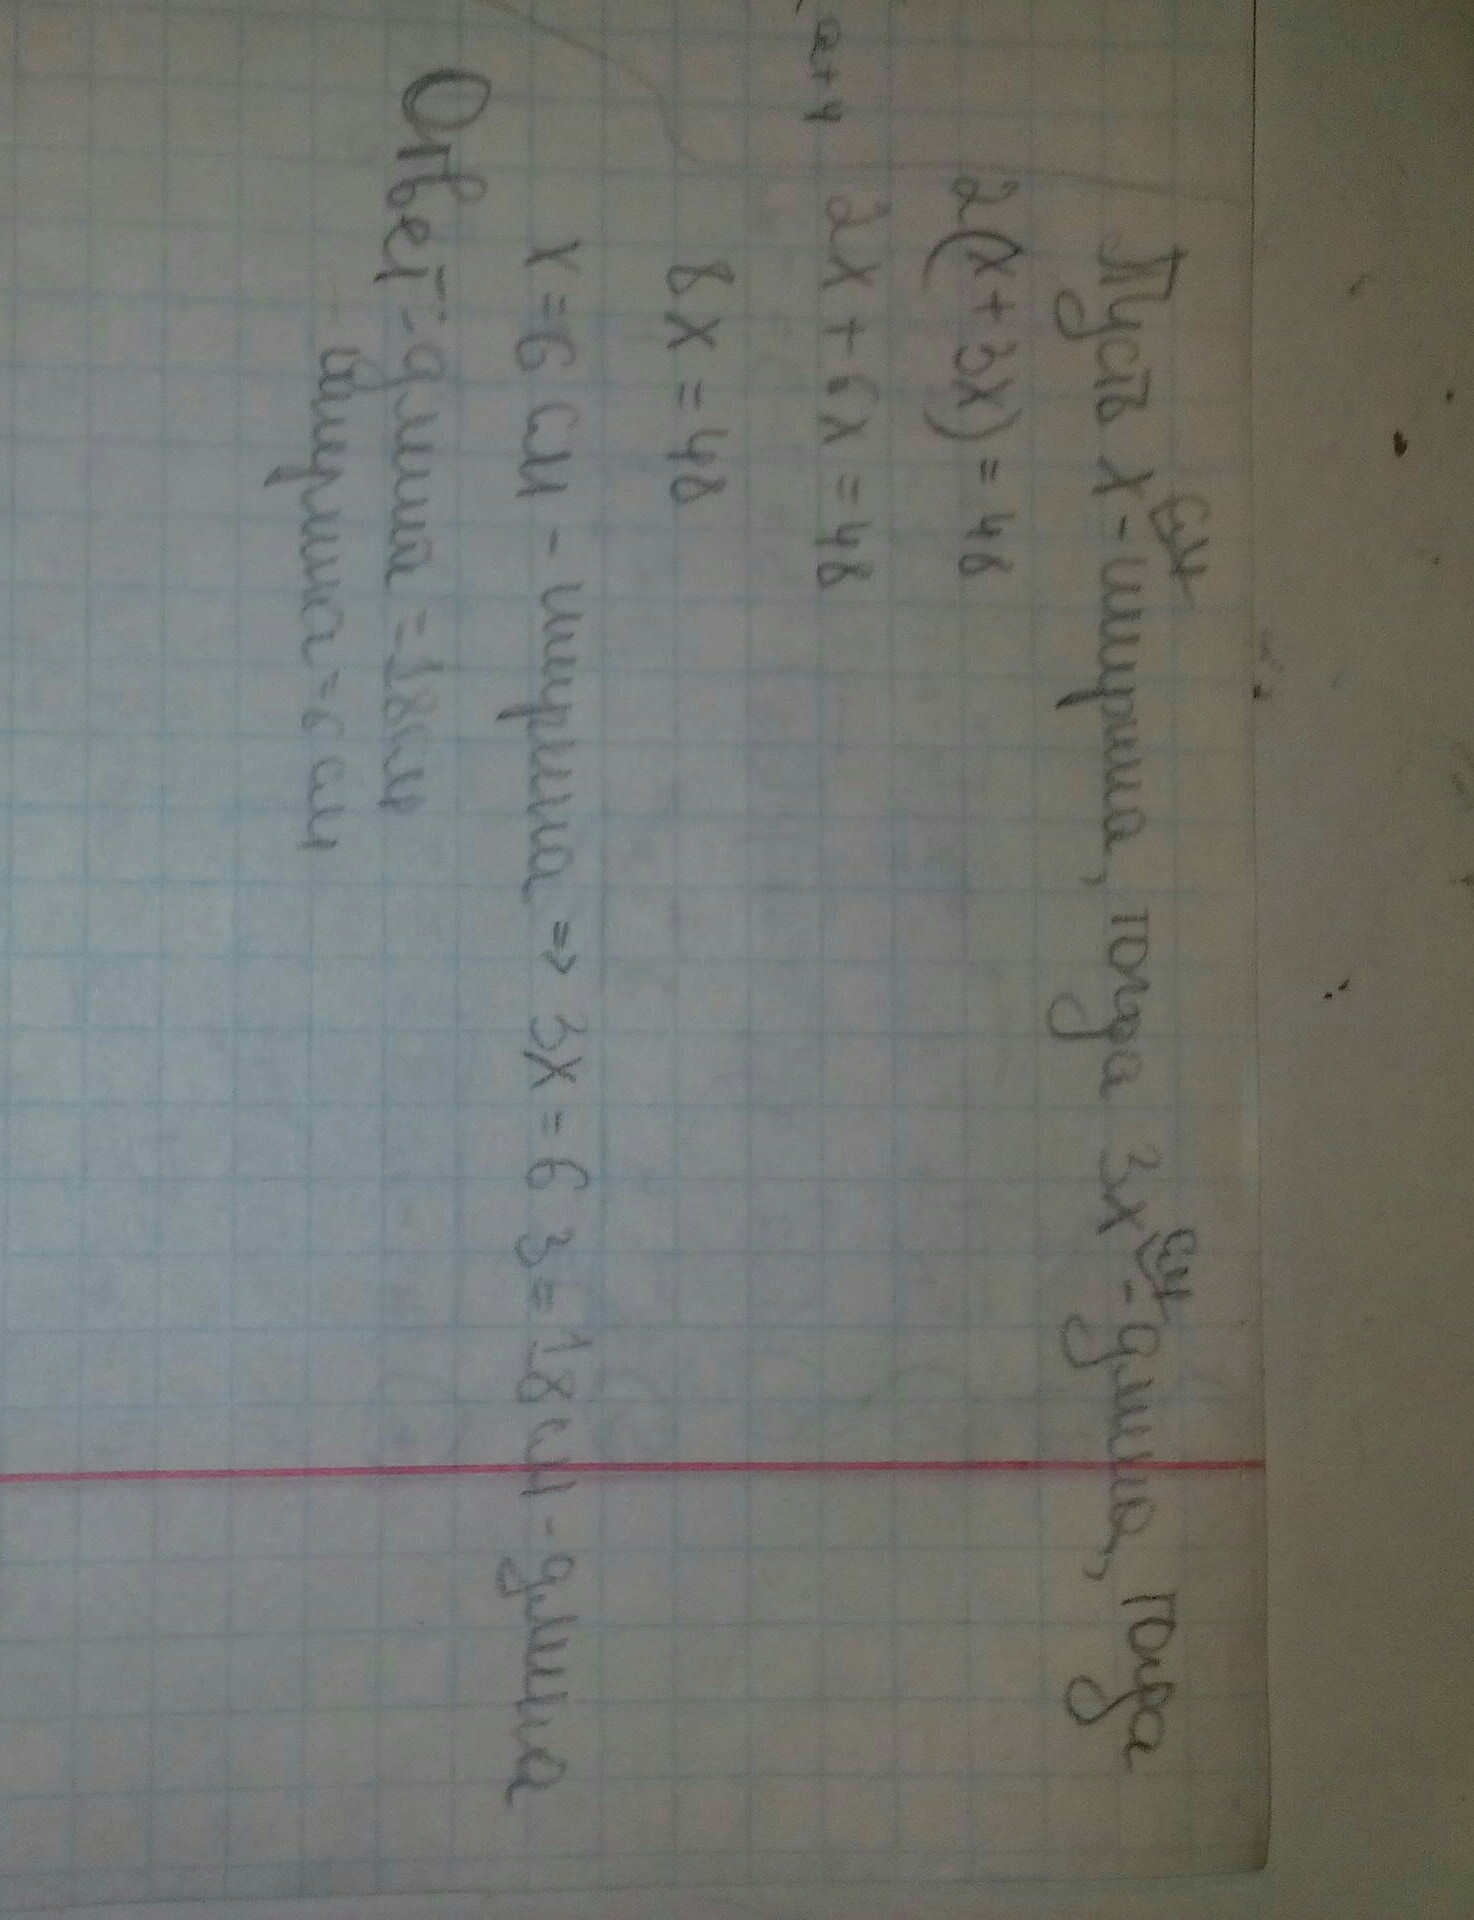 a+4
Пусть x см - ширина, тогда 3x см - длина, тогда
2(x+3x)=48
2x+6x=48
8x=48
x=6 см - ширина => 3x=6 3=18 см - длина
Ответ: длина = 18 см
ширина = 6 см